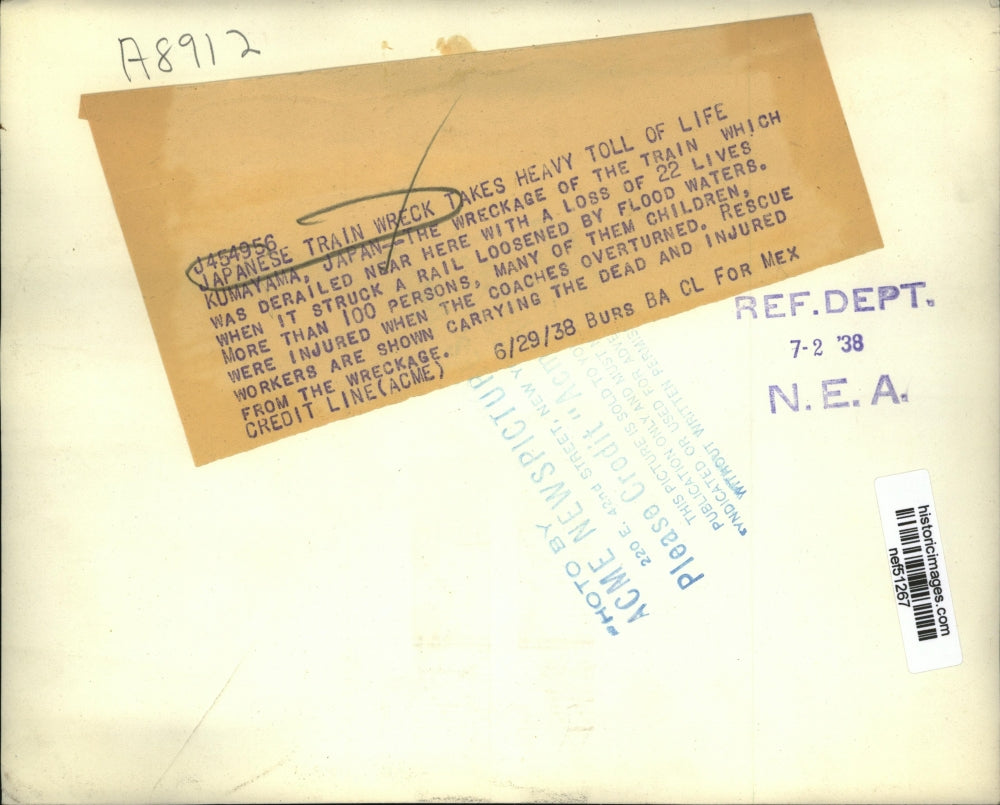 A8912
J454956
JAPANESE TRAIN WRECK TAKES HEAVY TOLL OF LIFE
KUMAYAMA, JAPAN--THE WRECKAGE OF THE TRAIN WHICH
WAS DERAILED NEAR HERE WITH A LOSS OF 22 LIVES
WHEN IT STRUCK A RAIL LOOSENED BY FLOOD WATERS.
MORE THAN 100 PERSONS, MANY OF THEM CHILDREN,
WERE INJURED WHEN THE COACHES OVERTURNED. RESCUE
WORKERS ARE SHOWN CARRYING THE DEAD AND INJURED
FROM THE WRECKAGE.
CREDIT LINE(ACME) 6/29/38 BURS BA CL FOR MEX
REF. DEPT.
7-2 '38
N. E. A.
PHOTO BY
ACME NEWSPICTUR
220 E. 42nd STREET, NEW Y
Please Credit "Acm
THIS PICTURE IS SOLD TO YO
PUBLICATION ONLY AND MUST
SYNDICATED OR USED FOR ADVE
WITHOUT WRITTEN PERMIS
historicimages.com
nef51267